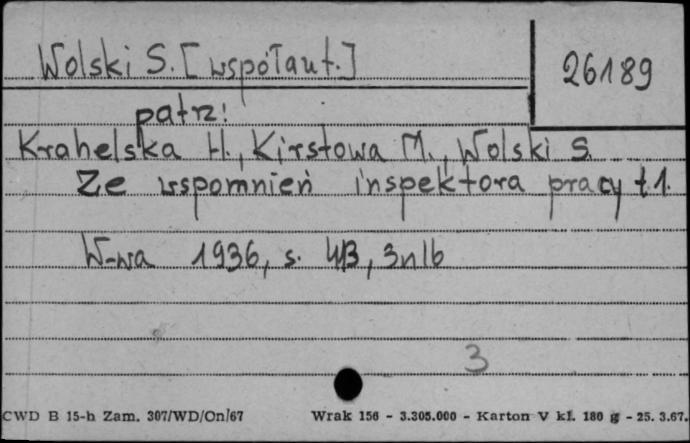 Wolski S. [współaut.]
26189
patrz:
Krahelska H., Kirstowa M., Wolski S.
Ze wspomnień inspektora pracy t.1.
W-wa 1936, s. 413, 3nlb
3
CWD B 15-h Zam. 307/WD/On/67 Wrak 156 - 3.305.000 - Karton V kl. 180 g - 25. 3.67.